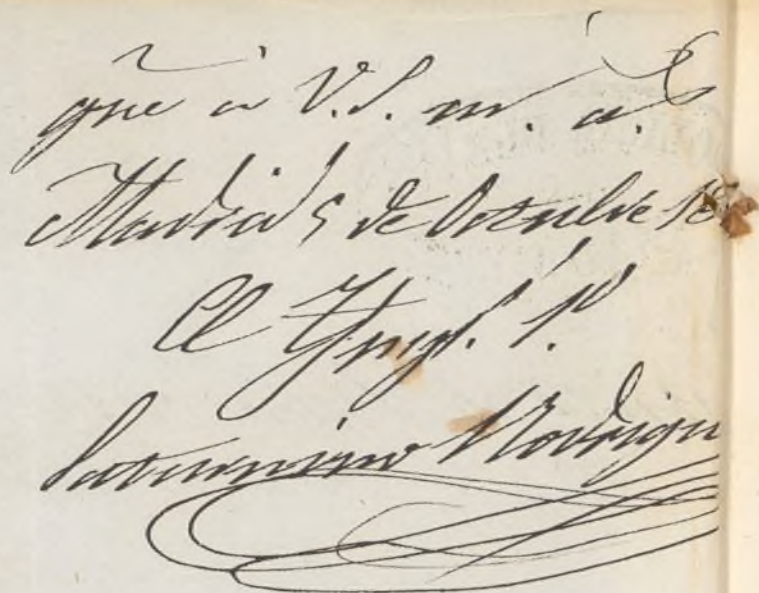 gũe a V.S. m. a.
Madrid 5 de Octubre 18
El Yngo. 1.o
Saturnino Rodrigu